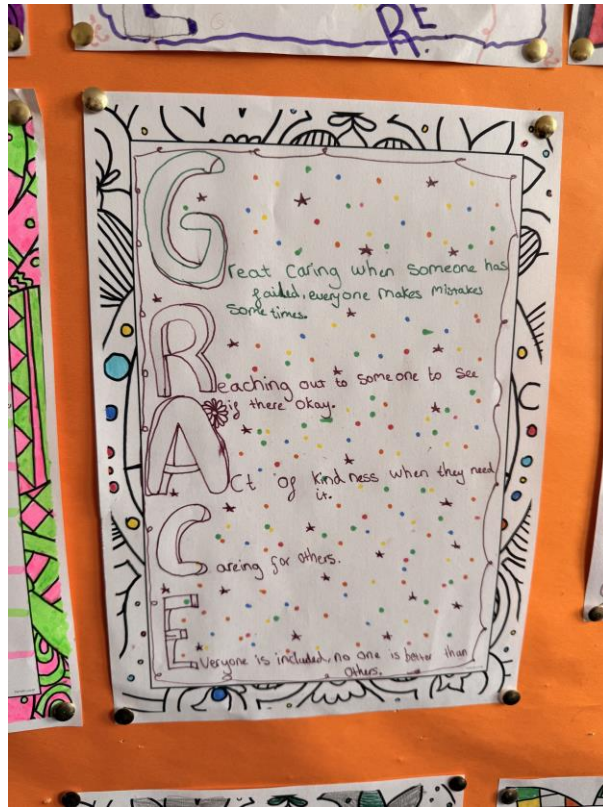 RE
Great Caring when someone has
failed, everyone makes mistakes
some times.
Reaching out to someone to see
if there okay.
Act of kindness when they need
it.
Careing for others.
Everyone is included, no one is better than
others.